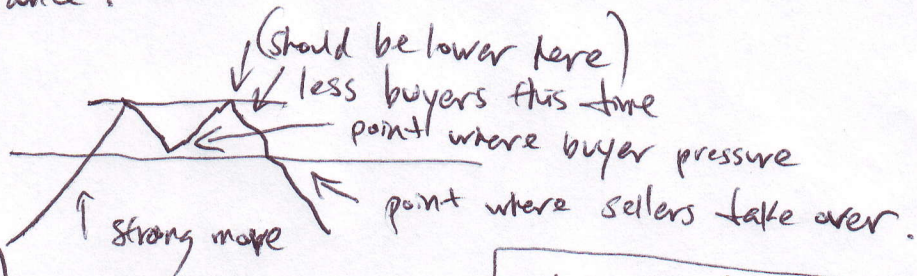 ance.
(should be lower here)
less buyers this time
point where buyer pressure
point where sellers take over.
strong move